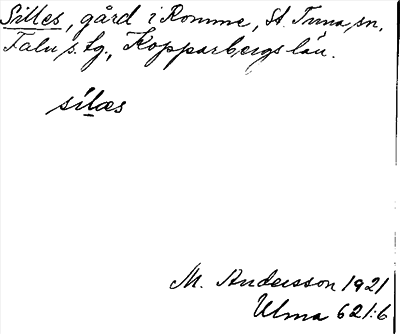 Silles, gård i Romme, St. Tuna sn,
Falu s. tg., Kopparbergs län.
sílæs
M. Andersson 1921
Ulma 621:6